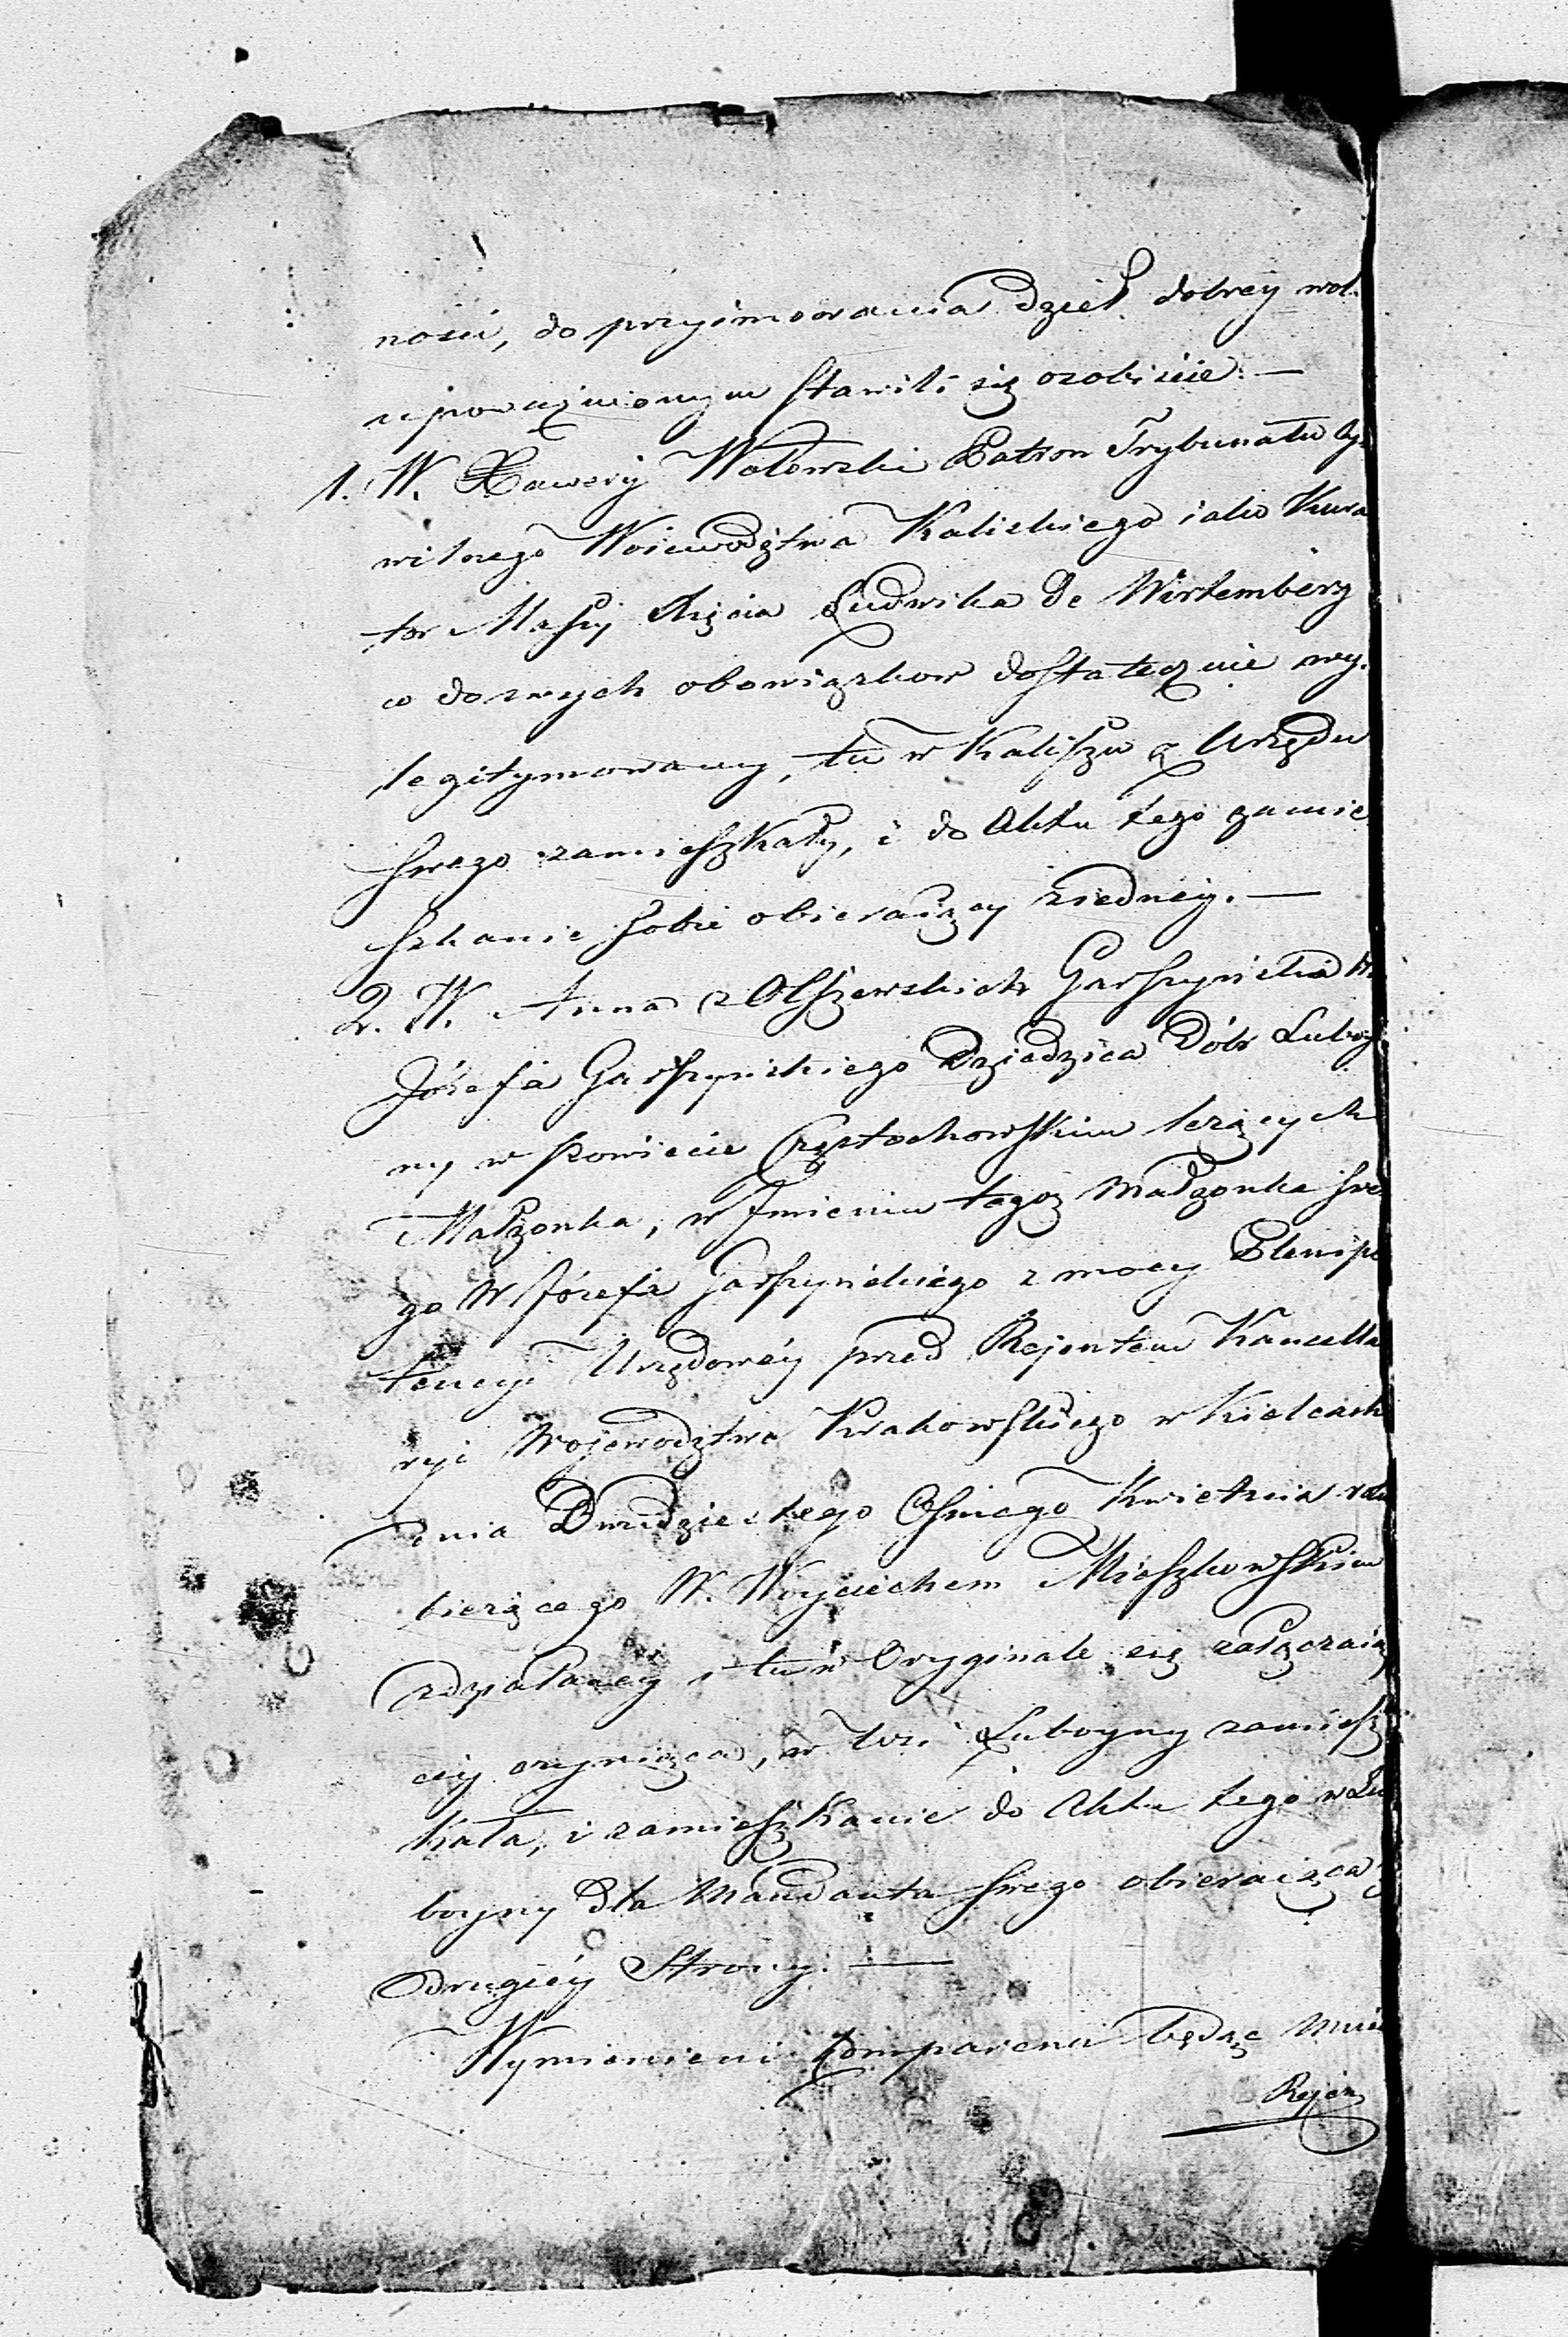 ności, do przyimowania Dzieł dobrey wol.
upoważnionym stawili się osobiście. —
1. W. Xawery Walewski Patron Trybunału Cy-
wilnego Woiewodztwa Kaliskiego iako Kura
tor Massy Xięcia Ludwika de Wirtemberg
co do swych obowiązkow dostatecznie wy-
legitymowany, tu w Kaliszu z Urzędu
swego zamieszkały, i do Aktu tego zamie
szkanie sobie obieraiący z iedney. —
2. W. Anna z Olszewskich Garszyńska W.
Józefa Garszynskiego Dziedzica Dóbr Luboy-
ny w Powiecie Częstochowskim leżących
Małżonka, w Imieniu tegoż Małżonka swe
go W Józefa Garszynskiego z mocy Plenipo
tencyi Urzędowéy przed Rejentem Kancella
ryi Wojewodztwa Krakowskiego w Kielcach
dnia Dwudziestego Osmego Kwietnia roku
bieżącego W. Woyciechem Mieszkowskim
zdziałanéy i tu w Oryginale się załączaią
céy czyniąca, w Wsi Luboyny zamiesz
kała, i zamieszkanie do Aktu tego w Lu
boyny dla Mandanta swego obieraiąca
drugiéy Strony. —
Wymienieni Komparenci będąc Mnie
Rejen